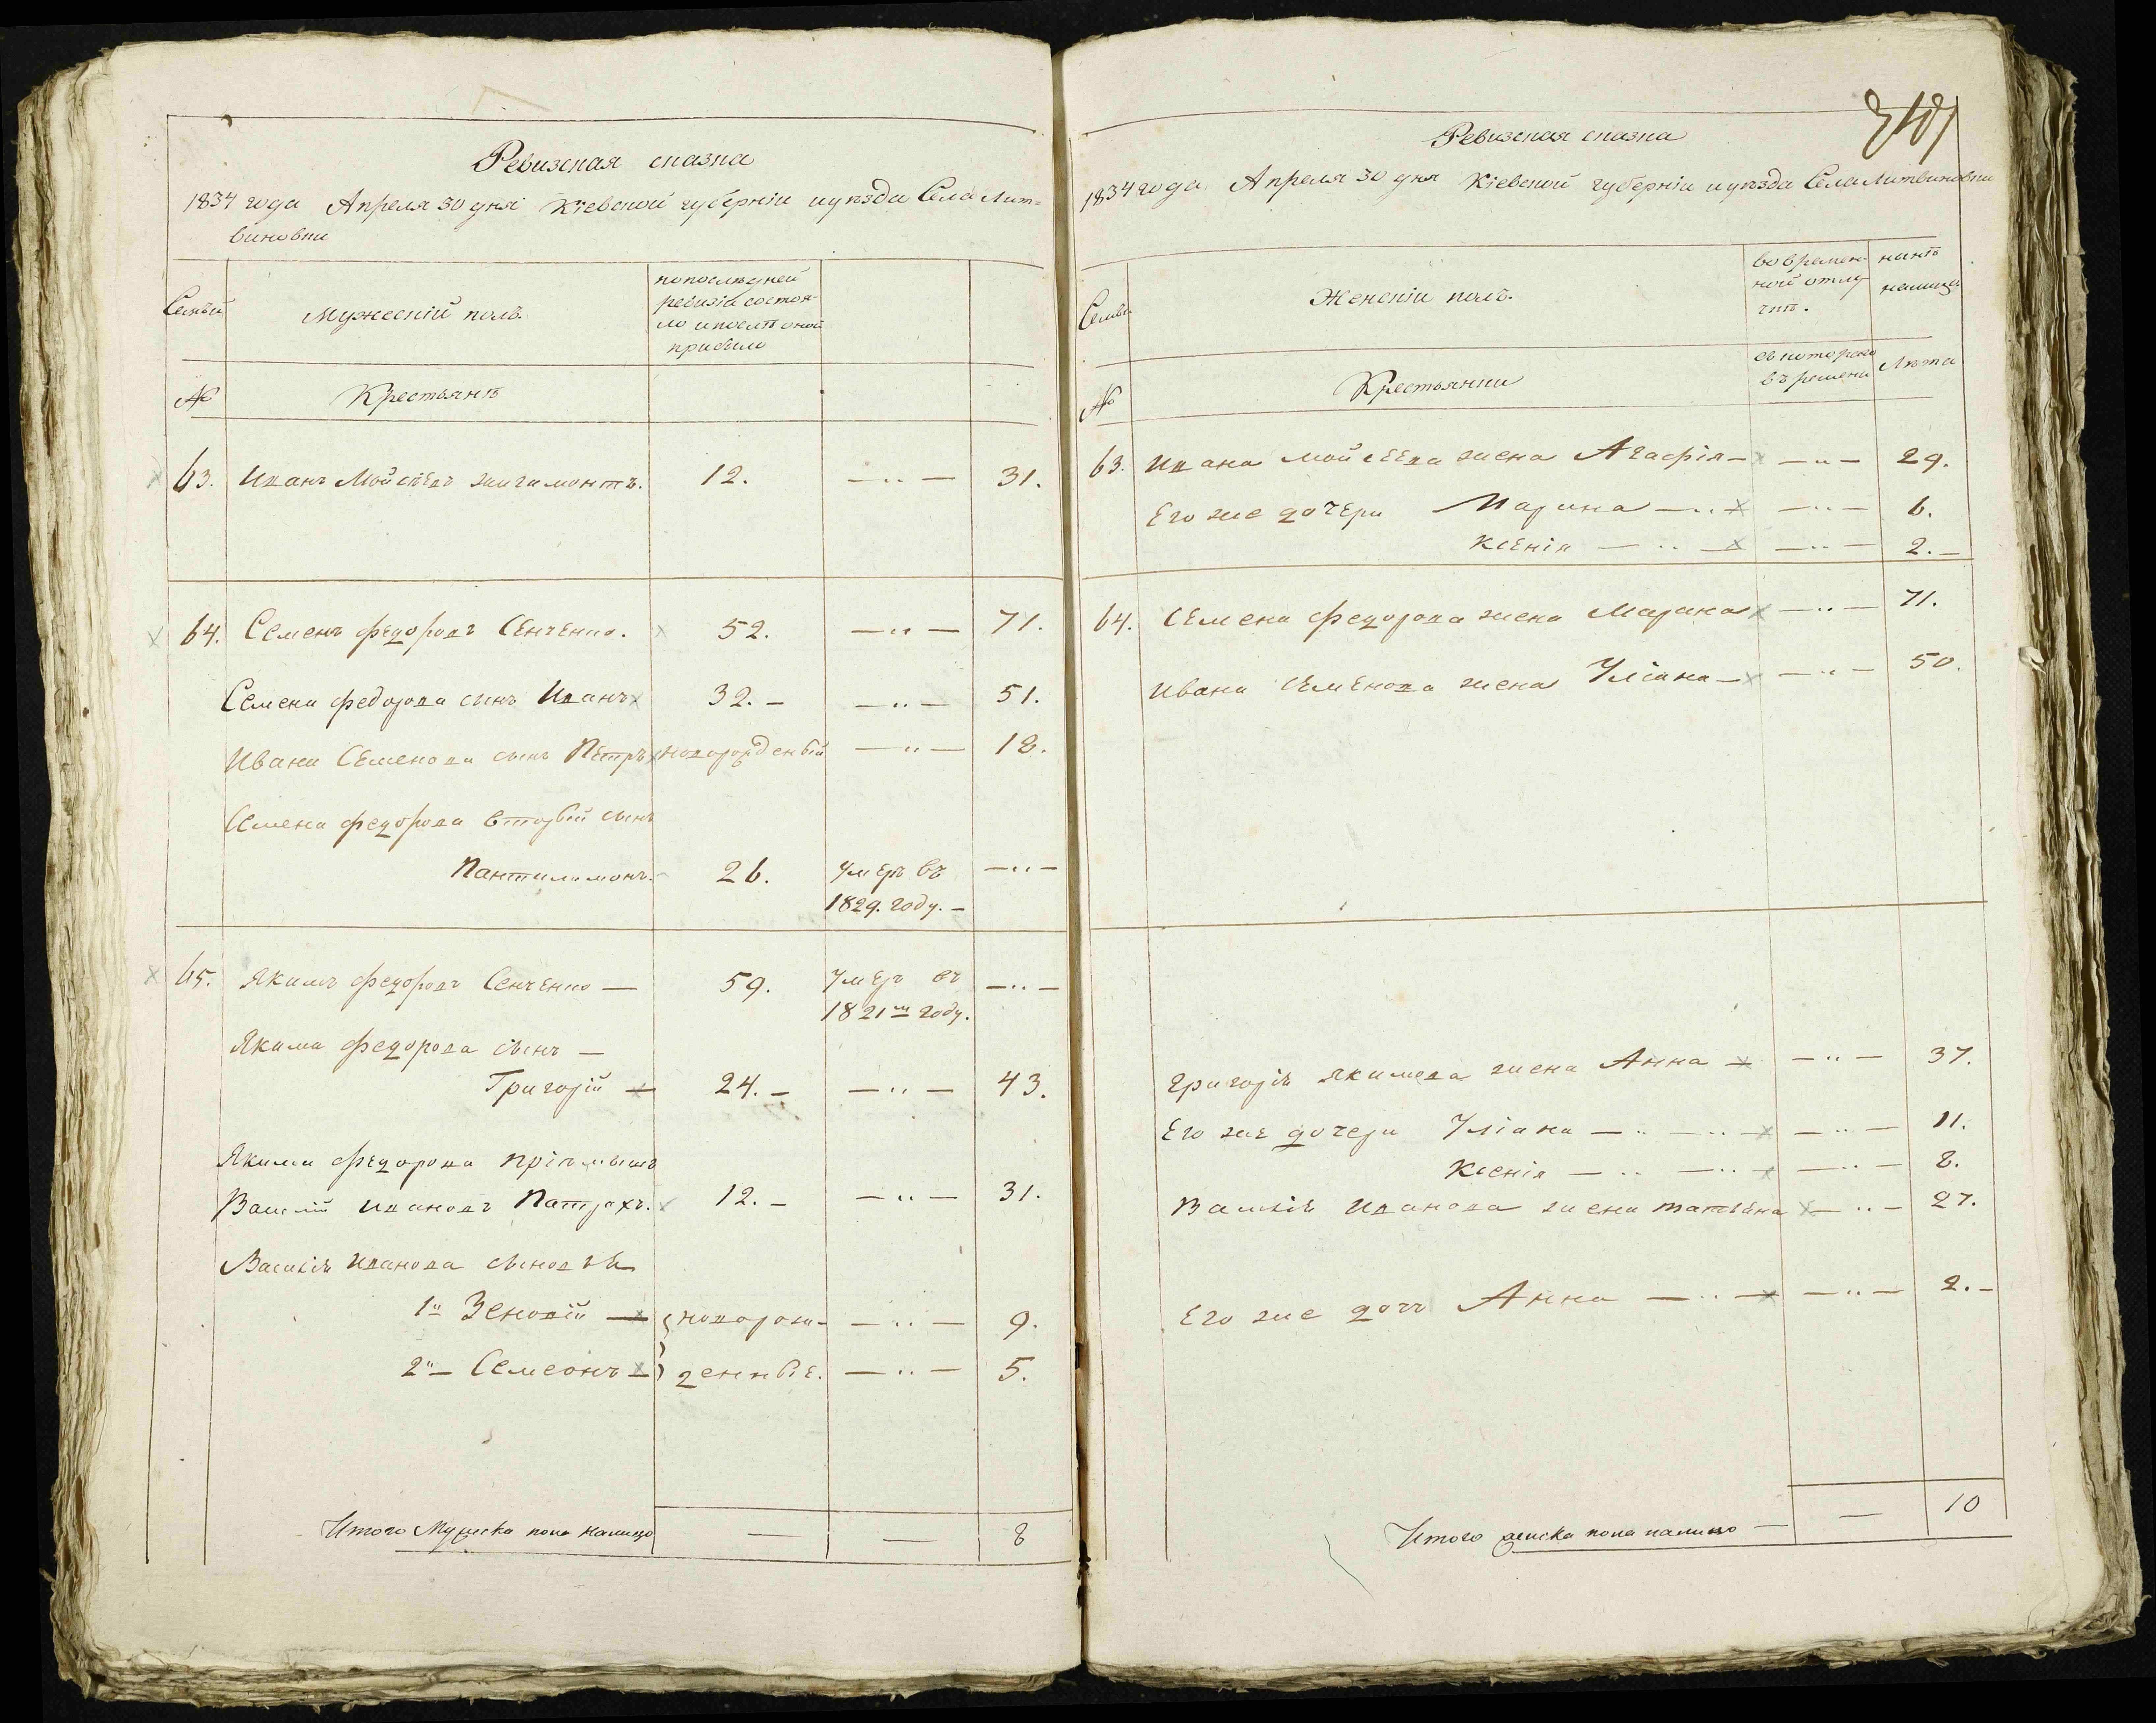 Ревизская сказка
1834 года Апреля 30 дня Кіевской губерніи и уѣзда Села Лит=
виновки
Семьи
Мужескій полъ.
по последней
ревизіи состоя-
ло и послѣ оной
прибыло
№
Крестьянѣ
63. Иванъ Мойсѣевъ 12. — „ — 31.
64. Семенъ федоровъ Сенченко. 52. — „ — 71.
Семена федорова сынъ Иванъ 32. — — „ — 51.
Ивана Семенова сынъ Петръ новорожденный — „ — 18.
Семена федорова вторый сынъ
Пантилимонъ. 26. Умеръ въ — „ —
1829. году. —
65. Якимъ федоровъ Сенченко — 59. Умеръ въ — „ —
1821м году.
Якима федорова сынъ —
Григорій — 24. — — „ — 43.
Якима федорова пріимышъ
Василій Ивановъ Патрахъ. 12. — — „ — 31.
Василія Иванова сыновья
1й Зеновій — новорож- — „ — 9.
2й — Семеонъ — денные. — „ — 5.
Итого Мужеска пола налицо — — 8
Ревизская сказка
1834 года Апреля 30 дня Кіевской губерніи и уѣзда Села Литвиновки
Семьи
Женскій полъ.
во времен-
ной отлу
чкѣ.
нынѣ
налицо
№
Крестьянки
съ которого
времени
Лѣта
63. Ивана Мойсеева жена Агафія — — „ — 29.
Его же дочери Марина — „ — — „ — 6.
Ксенія — „ — — „ — 2. —
64. Семена федорова жена Марина — „ — 71.
Ивана Семенова жена Уліана — — „ — 50.
Григорія Якимова жена Анна — — „ — 37.
Его же дочери Уліана — „ — „ — — „ — 11.
Ксенія — „ — „ — — „ — 8.
Василія Иванова жена татьяна — „ — 27.
Его же дочь Анна — „ — — „ — 2. —
Итого женска пола налицо — — 10